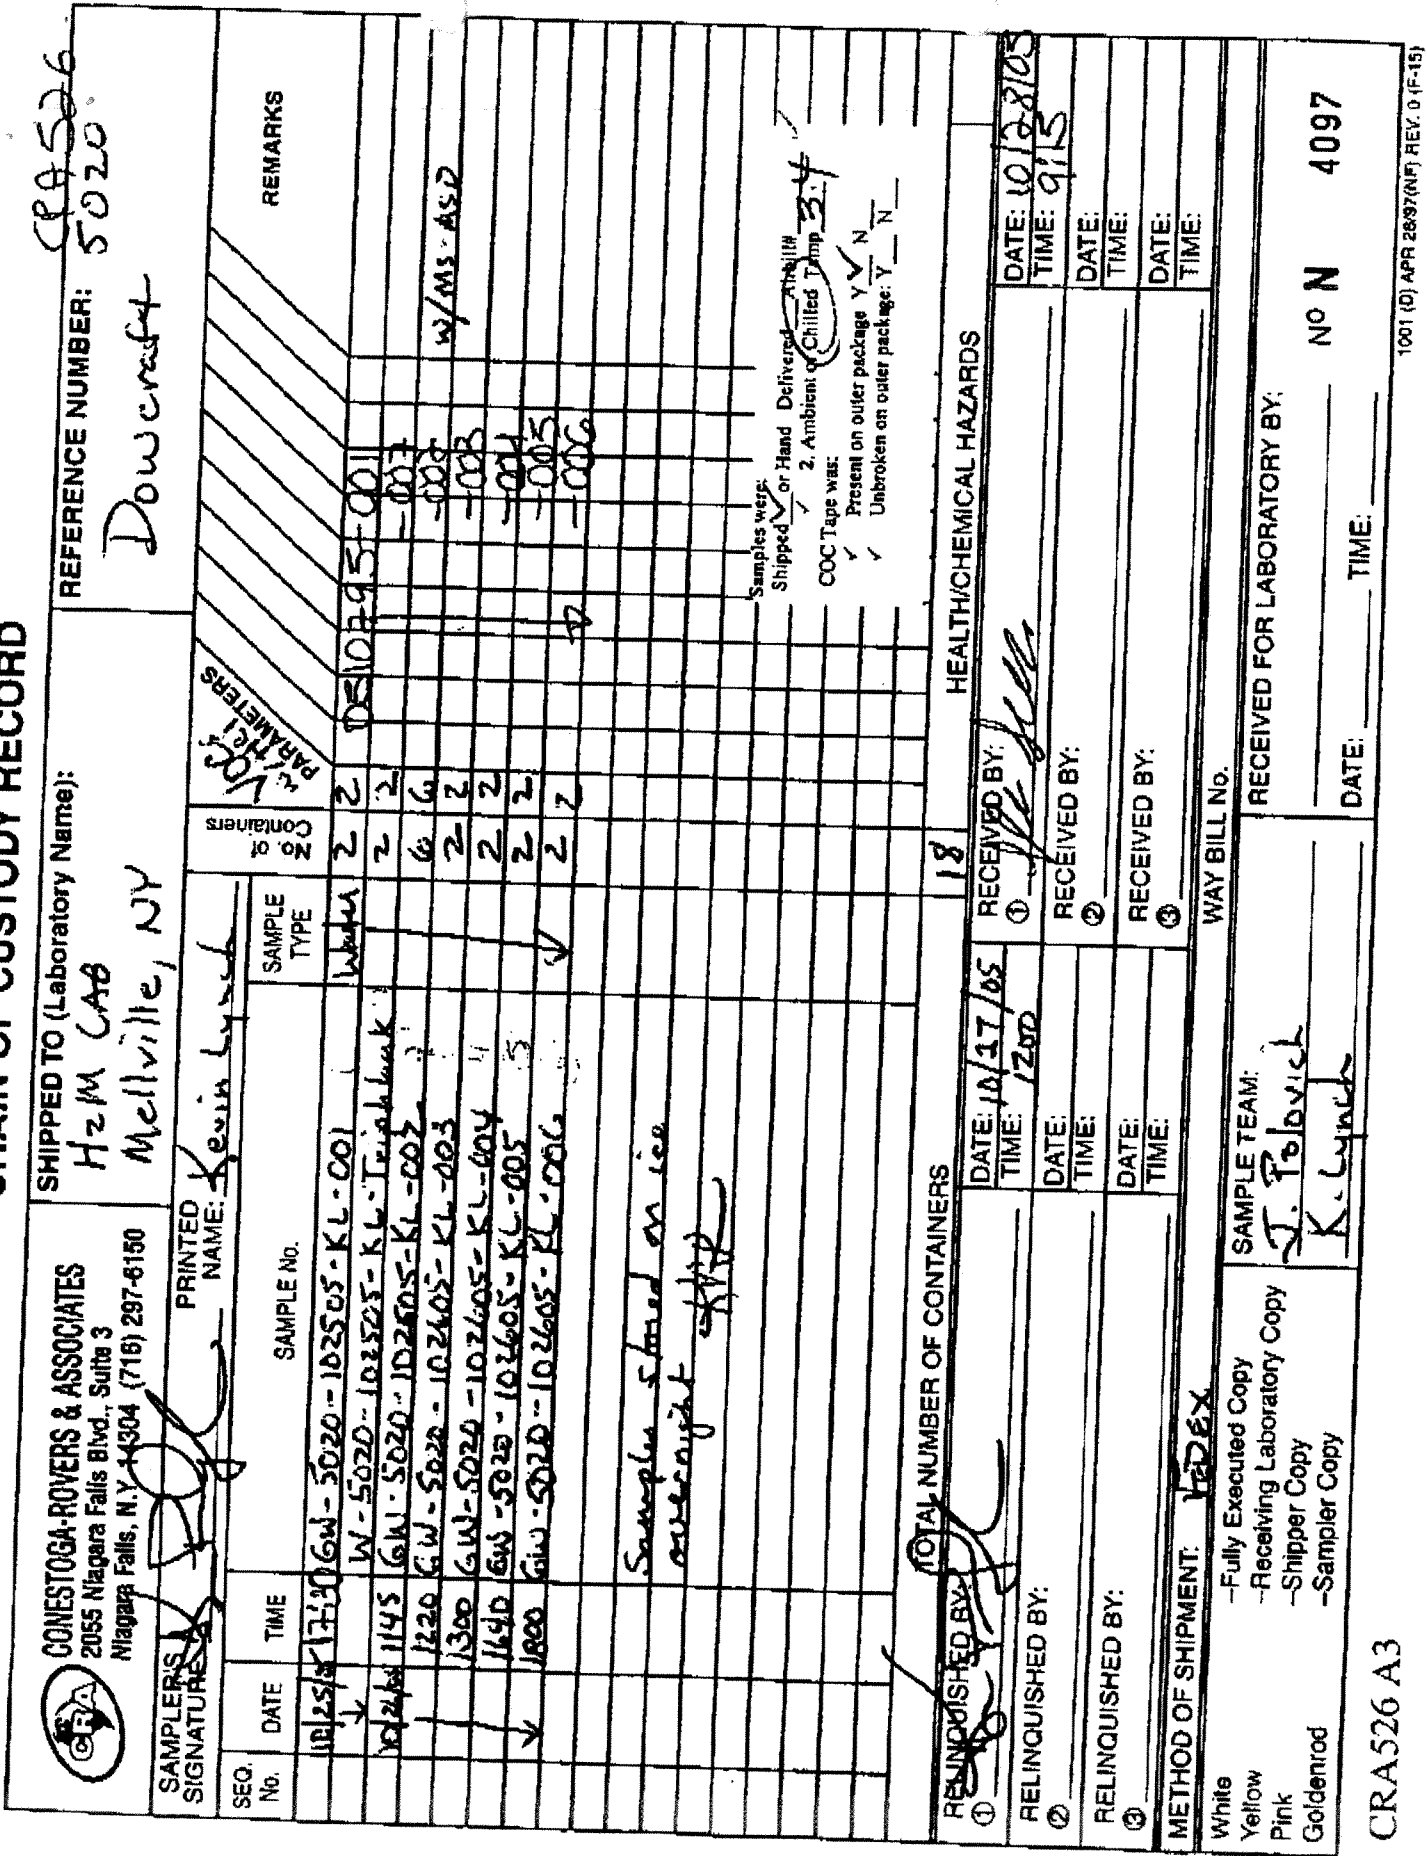 CHAIN OF CUSTODY RECORD
CRA
CONESTOGA-ROVERS & ASSOCIATES
2055 Niagara Falls Blvd., Suite 3
Niagara Falls, N.Y. 14304 (716) 297-6150
SHIPPED TO (Laboratory Name):
H2M LAB
Mellville, NY
REFERENCE NUMBER: CRA526
5020
Dowcraft
SAMPLER'S
SIGNATURE:
PRINTED
NAME: Kevin Lynch
SEQ.
No.
DATE
TIME
SAMPLE No.
SAMPLE
TYPE
No. of
Containers
PARAMETERS
VOCs
REMARKS
10/25/05 1730 GW-5020-102505-KL-001 Water 2 2 0510795-001
W-5020-102505-KL-Tripblank 2 2
10/26/05 1145 GW-5020-102605-KL-002 6 6 -002 w/MS-ASD
1220 GW-5020-102605-KL-003 2 2 -003
1300 GW-5020-102605-KL-004 2 2
1640 GW-5020-102605-KL-005 2 2 -005
1800 GW-5020-102605-KL-006 2 2 -006
Samples stored on ice
overnight
Samples were:
Shipped ✓ or Hand Delivered Airbill#
2. Ambient or Chilled Temp 3.4
COC Tape was:
Present on outer package Y ✓ N
Unbroken on outer package: Y N
TOTAL NUMBER OF CONTAINERS 18
HEALTH/CHEMICAL HAZARDS
RELINQUISHED BY:
①
DATE: 10/27/05
TIME: 1200
RECEIVED BY:
①
DATE: 10/28/05
TIME: 9:15
RELINQUISHED BY:
②
DATE:
TIME:
RECEIVED BY:
②
DATE:
TIME:
RELINQUISHED BY:
③
DATE:
TIME:
RECEIVED BY:
③
DATE:
TIME:
METHOD OF SHIPMENT: FEDEX
WAY BILL No.
White –Fully Executed Copy
Yellow –Receiving Laboratory Copy
Pink –Shipper Copy
Goldenrod –Sampler Copy
SAMPLE TEAM:
J. Polovich
K. Lynch
RECEIVED FOR LABORATORY BY:
DATE: TIME:
Nº N 4097
1001 (D) APR 28/97(NF) REV. 0 (F-15)
CRA526 A3